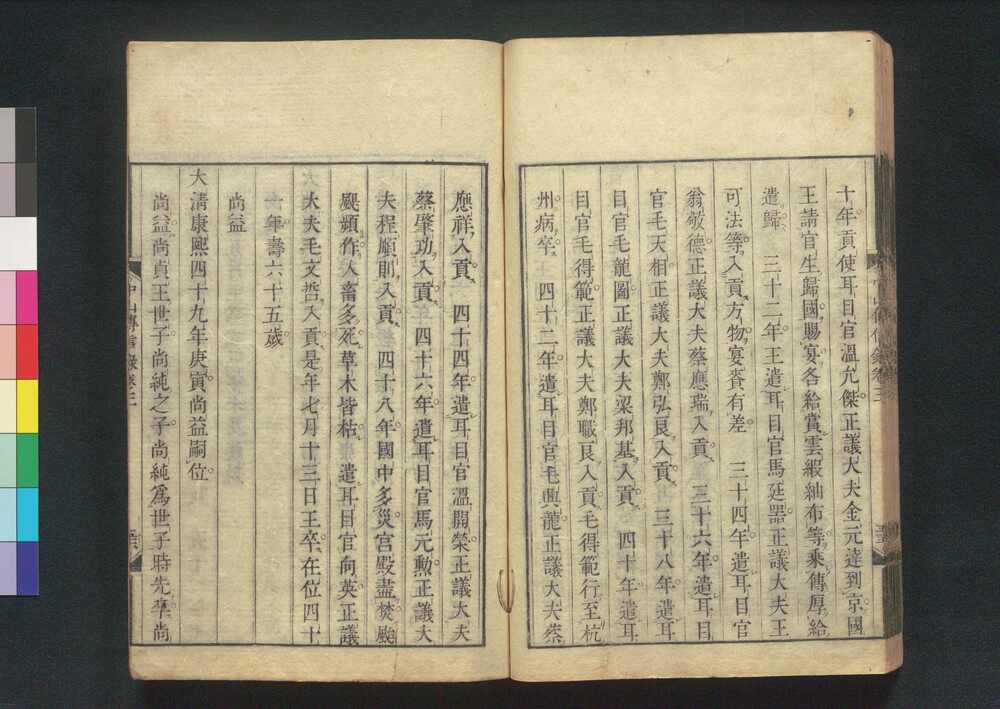 十年貢使耳目官溫允傑正議大夫金元達到京國
王請官生歸國賜宴各給賞雲緞紬布等乘傳厚給
遣歸　三十二年王遣耳目官馬廷器正議大夫王
可法等入貢方物宴賚有差　三十四年遣耳目官
翁敬德正議大夫蔡應瑞入貢　三十六年遣耳目
官毛天相正議大夫鄭弘良入貢　三十八年遣耳
目官毛龍圖正議大夫梁邦基入貢　四十年遣耳
目官毛得範正議大夫鄭職良入貢毛得範行至杭
州病卒　四十二年遣耳目官毛興龍正議大夫蔡
應祥入貢　四十四年遣耳目官溫開榮正議大夫
蔡肇功入貢　四十六年遣耳目官馬元勲正議大
夫程順則入貢　四十八年國中多災宮殿盡焚颱
颶頻作人畜多死草木皆枯　遣耳目官向英正議
大夫毛文哲入貢是年七月十三日王卒在位四十
一年壽六十五歲
尚益
大清康熙四十九年庚寅尚益嗣位
尚益尚貞王世子尚純之子尚純爲世子時先卒尚
中山傳信錄卷三